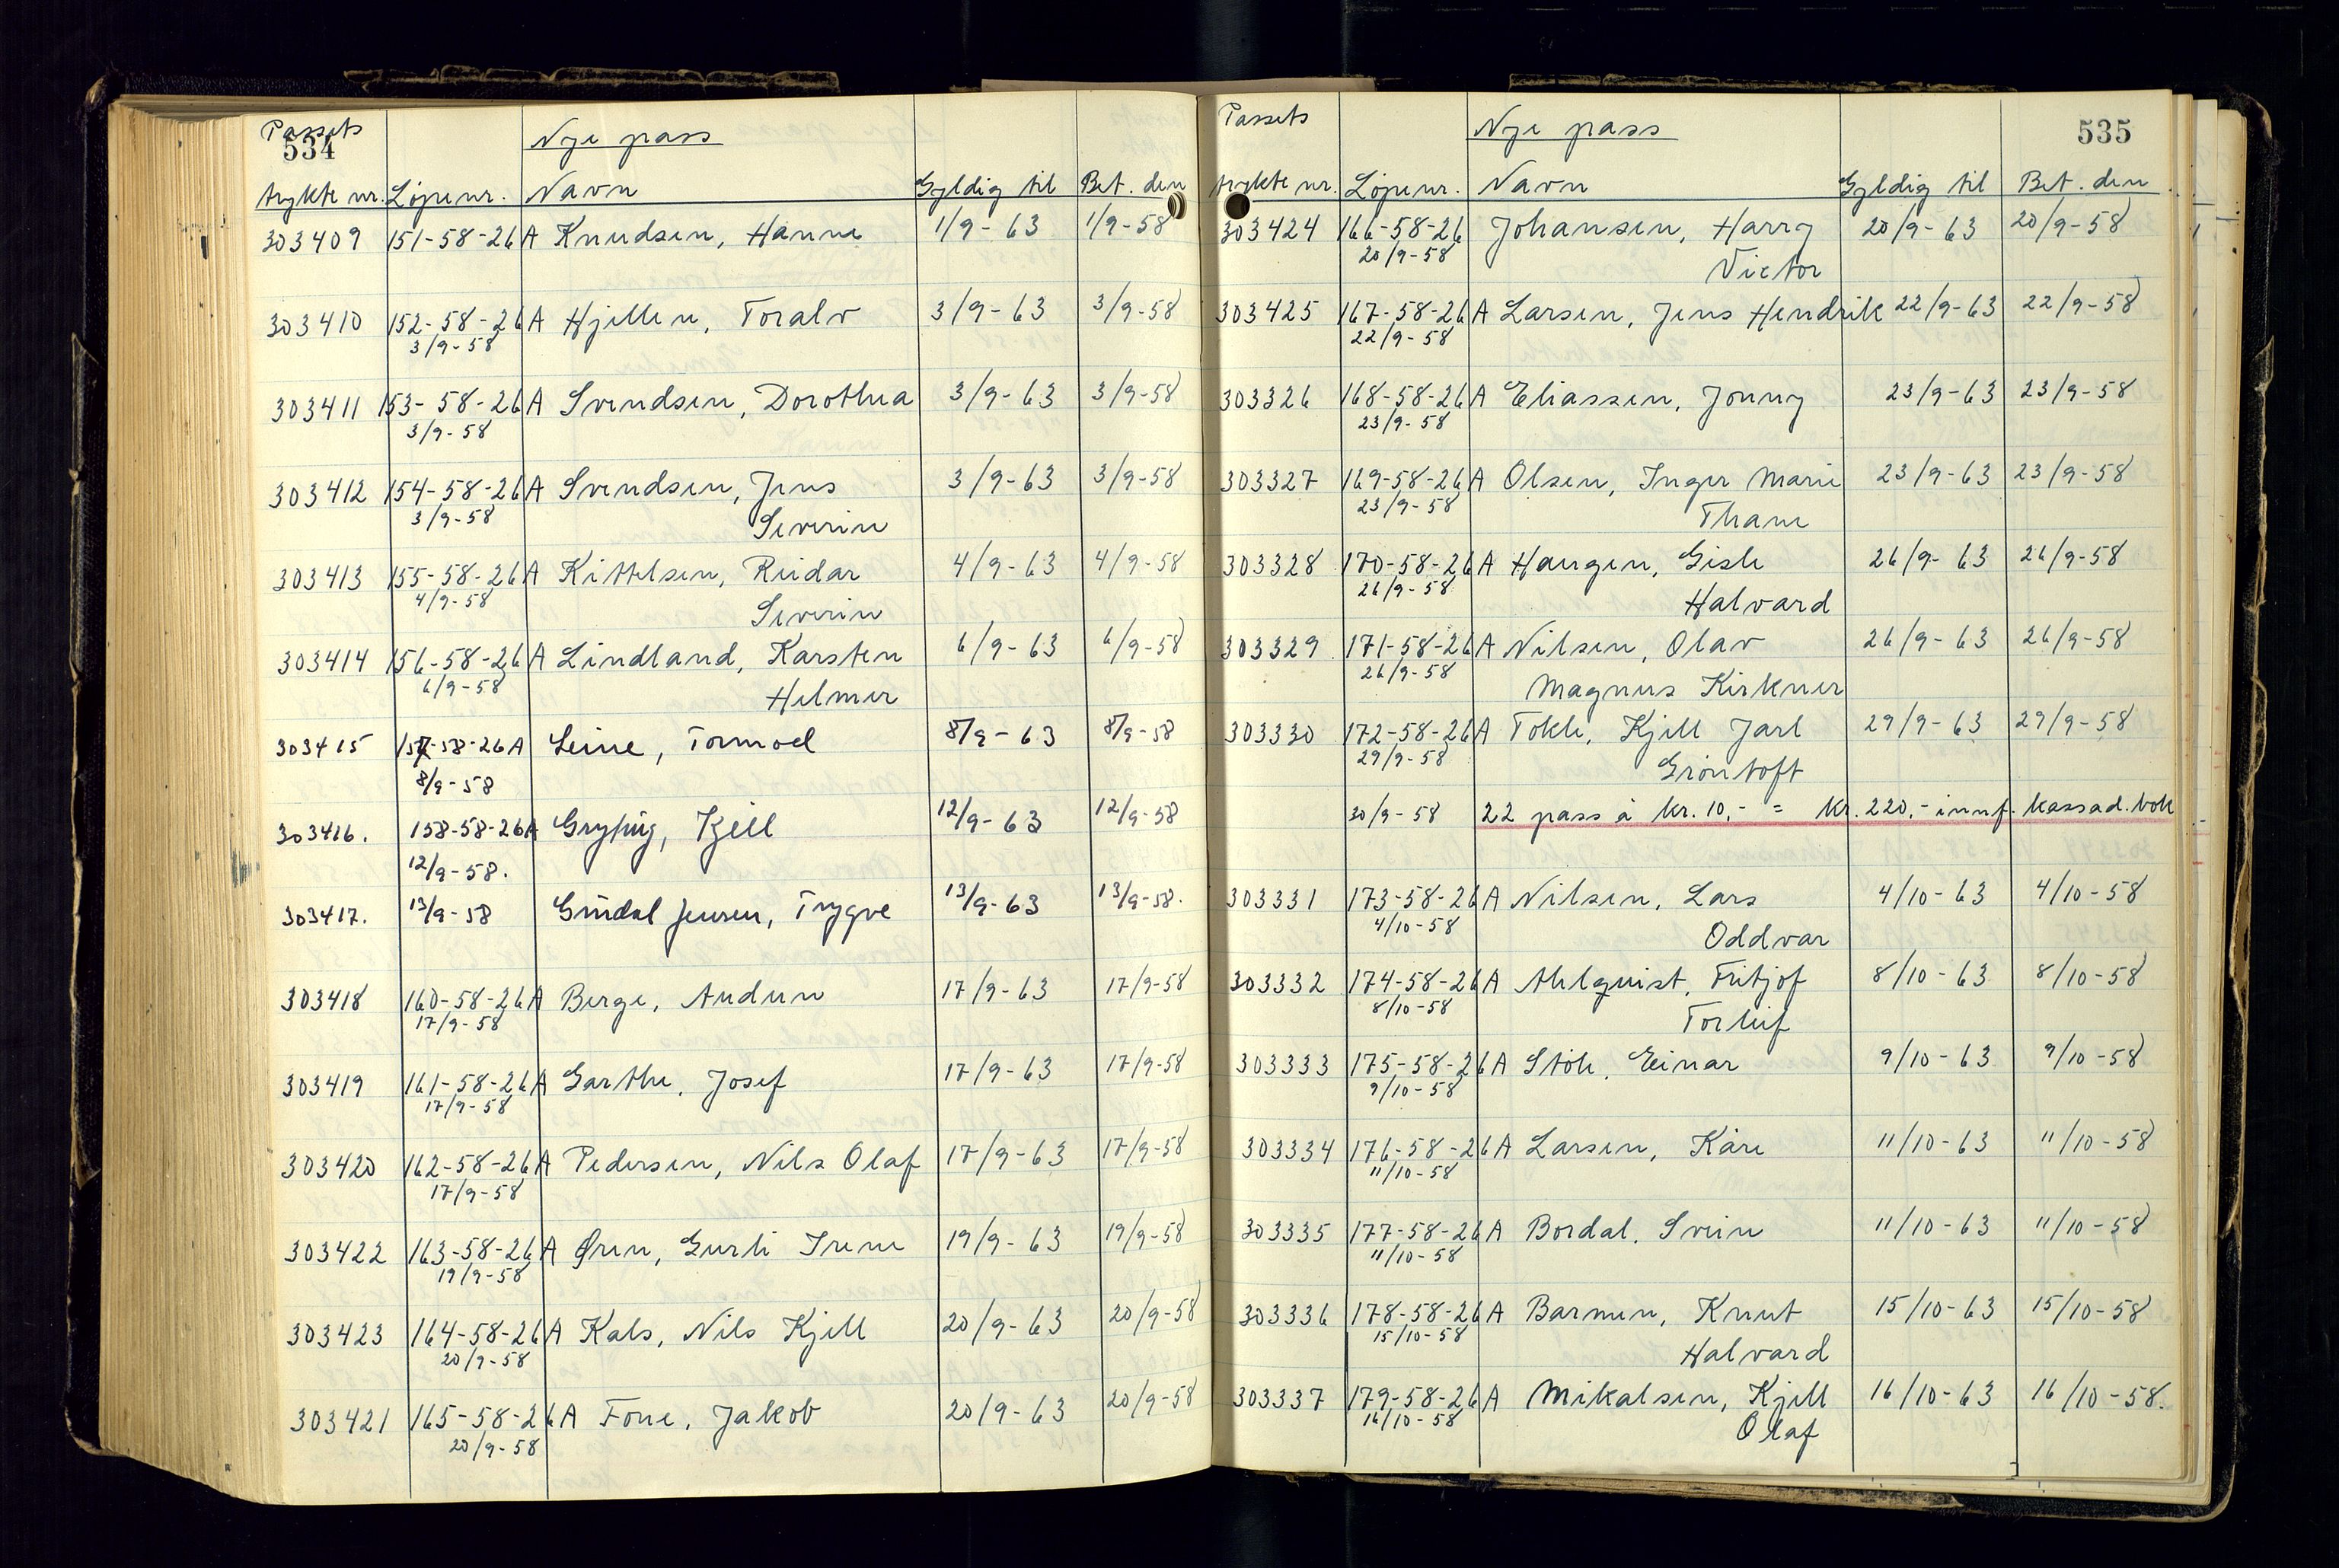 Passets
534
Nye pass
trykte nr. Löpenr. Navn Gyldig til Bet. den
303409 151-58-26A Knudsen, Hanne 1/9-63 1/9-58
303410 152-58-26A Hjellen, Toralv 3/9-63 3/9-58
3/9-58
303411 153-58-26A Svendsen, Dorothea 3/9-63 3/9-58
3/9-58
303412 154-58-26A Svendsen, Jens 3/9-63 3/9-58
3/9-58 Severin
303413 155-58-26A Kittelsen, Reidar 4/9-63 4/9-58
4/9-58 Severin
303414 156-58-26A Lindland, Karsten 6/9-63 6/9-58
6/9-58 Helmer
303415 157-58-26A Leine, Tormod 8/9-63 8/9-58
8/9-58
303416. 158-58-26A Kjell 12/9-63 12/9-58
12/9-58.
303417. 13/9-58 Jensen, Trygve 13/9-63 13/9-58.
303418 160-58-26A Berge, Audun 17/9-63 17/9-58
17/9-58
303419 161-58-26A Garthe, Josef 17/9-63 17/9-58
17/9-58
303420 162-58-26A Pedersen, Nils Olaf 17/9-63 17/9-58
17/9-58
303422 163-58-26A Øren, Gurli Irene 19/9-63 19/9-58
19/9-58
303423 164-58-26A Kals, Nils Kjell 20/9-63 20/9-58
20/9-58
303421 165-58-26A Fone, Jakob 20/9-63 20/9-58
20/9-58
Passets
Nye pass
535
trykte nr. Löpenr. Navn Gyldig til Bet. den
303424 166-58-26 Johansen, Harry 20/9-63 20/9-58
20/9-58 Victor
303425 167-58-26A Larsen, Jens Hendrik 22/9-63 22/9-58
22/9-58
303326 168-58-26A Eliassen, Jonny 23/9-63 23/9-58
23/9-58
303327 169-58-26A Olsen, Inger Marie 23/9-63 23/9-58
23/9-58 Thane
303328 170-58-26A Haugen, Gisle 26/9-63 26/9-58
26/9-58 Halvard
303329 171-58-26A Nilsen, Olav 26/9-63 26/9-58
26/9-58 Magnus Kirkener
303330 172-58-26A Tokle, Kjell Jarl 29/9-63 29/9-58
29/9-58 Gröntoft
30/9-58 22 pass à kr. 10,- = kr. 220,- innf. kassad.bok
303331 173-58-26A Nilsen, Lars 4/10-63 4/10-58
4/10-58 Oddvar
303332 174-58-26A Ahlquist, Fritjof 8/10-63 8/10-58
8/10-58 Torleif
303333 175-58-26A Stöle, Einar 9/10-63 9/10-58
9/10-58
303334 176-58-26A Larsen, Kåre 11/10-63 11/10-58
11/10-58
303335 177-58-26A Bordal, Svein 11/10-63 11/10-58
11/10-58
303336 178-58-26A Barmen, Knut 15/10-63 15/10-58
15/10-58 Halvard
303337 179-58-26A Mikalsen, Kjell 16/10-63 16/10-58.
16/10-58 Olaf